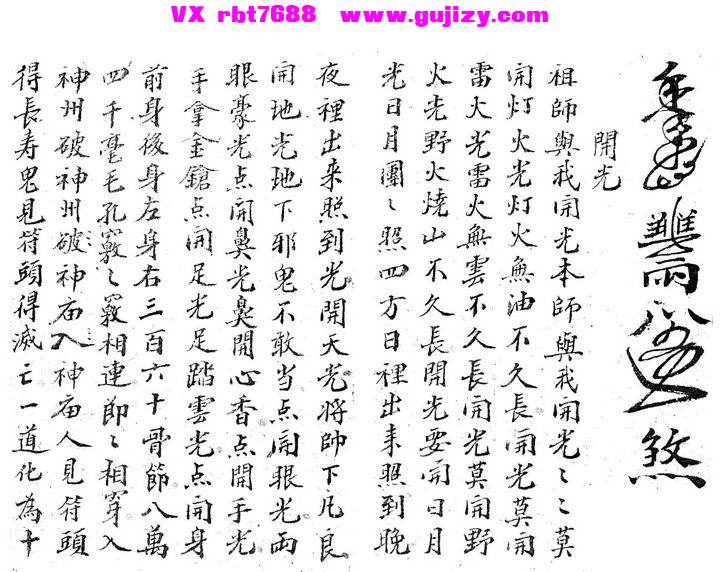 VX rbt7688 www.gujizy.com
煞
開光
祖師與我开光本師與我开光〻〻莫
開灯火光灯火無油不久長開光莫開
雷火光雷火無雲不久長開光莫開野
火光野火燒山不久長開光要開日月
光日月團〻照四方日裡出来照到晚
夜裡出来照到光開天光將帥下凡良
開地光地下邪鬼不敢当点開眼光両
眼豪光点開鼻光鼻開心香点開手光
手拿金鎗点開足光足踏雲光点開身
前身後身左身右三百六十骨節八萬
四千毫毛孔竅〻竅相連節〻相穿入
神州破神州破神庙入神庙人見符頭
得長寿鬼見符頭得滅亡一道化為十